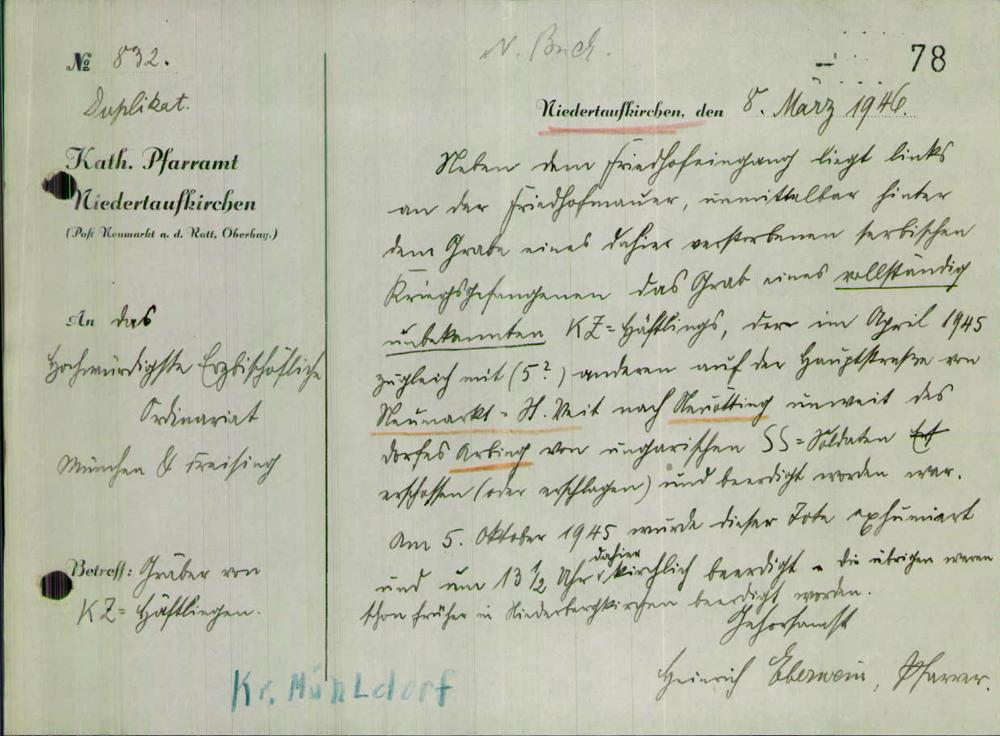 N. Buch.
78
№ 832.
Duplikat.
Kath. Pfarramt
Niedertaufkirchen
(Post Neumarkt a. d. Rott, Oberbay.)
An das
Hochwürdigste Erzbischöfliche
Ordinariat
München & Freising
Betreff: Gräber von
KZ=Häftlingen.
Niedertaufkirchen, den 8. März 1946.
Neben dem Friedhofeingang liegt links
an der Friedhofmauer, unmittelbar hinter
dem Grabe eines dahier verstorbenen serbischen
Kriegsgefangenen das Grab eines vollständig
unbekannten KZ=Häftlings, der im April 1945
zugleich mit (5?) anderen auf der Hauptstrasse von
Neumarkt-St. Veit nach Neuötting unweit des
Dorfes Arbing von ungarischen SS=Soldaten
erschossen (oder erschlagen) und beerdigt worden war.
Am 5. Oktober 1945 wurde dieser Tote exhumiert
und um 13 1/2 Uhr dahier kirchlich beerdigt - die übrigen waren
schon früher in Niederbergkirchen beerdigt worden.
Gehorsamst
Heinrich Eberwein, Pfarrer.
Kr. Mühldorf